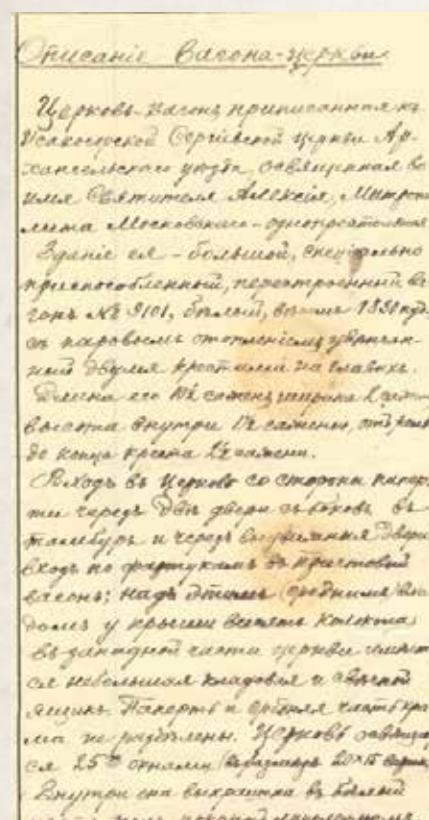 Описаніе вагона-церкви.
Церковь-вагонъ приписанная къ
Исакогорской Сергіевской церкви Ар-
хангельскаго уѣзда, освященная во
имя Святителя Алексія, Митропо
лита Московскаго - однопрестольная
Зданіе ея - большой, спеціально
приспособленный, перестроенный ва
гонъ № 9101, бѣлый, вѣсомъ 1830 пуд.
съ паровымъ отопленіемъ, увѣнчан-
ный двумя крестами на главахъ.
Длина его сажень, ширина
высота внутри сажени, отъ
до конца креста сажени.
Входъ въ Церковь со стороны папер
ти черезъ двѣ двери съ боковъ въ
тамбуръ и черезъ двери
входъ по фартукамъ въ
вагонъ; надъ этимъ (среднимъ) вхо
домъ у крыши колокола
въ западной части церкви имѣет
ся небольшая кладовая и свѣчной
ящикъ. Паперть и средняя часть хра
ма не раздѣлены. Церковь освѣщает
ся 25ю окнами (въ размѣрѣ 20×15
Внутри она выкрашена въ бѣлый